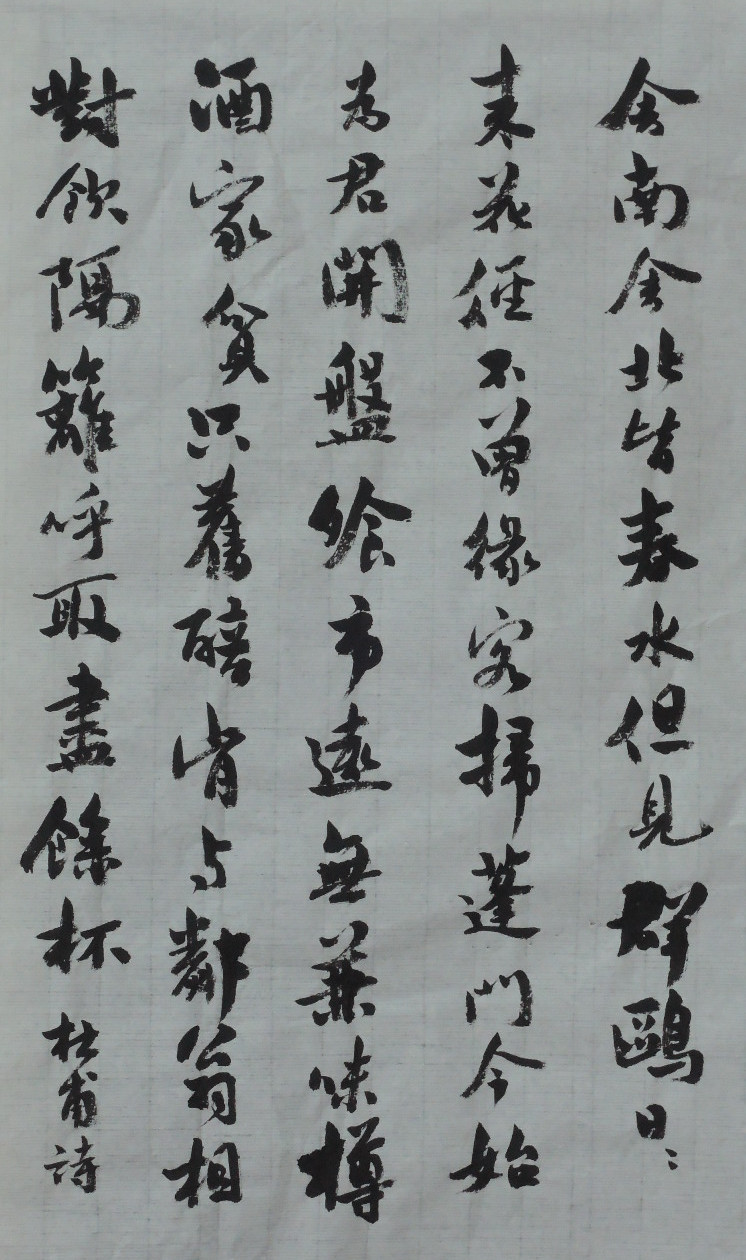 舍南舍北皆春水但見群鷗日〻
来花徑不曾緣客掃蓬門今始
为君開盤飧市遠無兼味樽
酒家貧只舊醅肯与鄰翁相
對飲隔籬呼取盡餘杯 杜甫詩